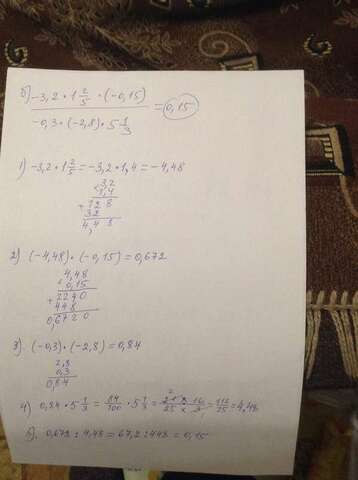 б) -3,2 · 1 2/5 · (-0,15)
= 0,15
-0,3 · (-2,8) · 5 1/3
1) -3,2 · 1 2/5 = -3,2 · 1,4 = -4,48
× 3,2
1,4
+ 128
32
4,48
2) (-4,48) · (-0,15) = 0,672
4,48
× 0,15
+ 2240
448
0,6720
3) (-0,3) · (-2,8) = 0,84
2,8
0,3
0,84
4) 0,84 · 5 1/3 = 84/100 · 5 1/3 = 21 × 16 / 25 × 3 = 112/25 = 4,48
0,672 : 4,48 = 67,2 : 448 = 0,15